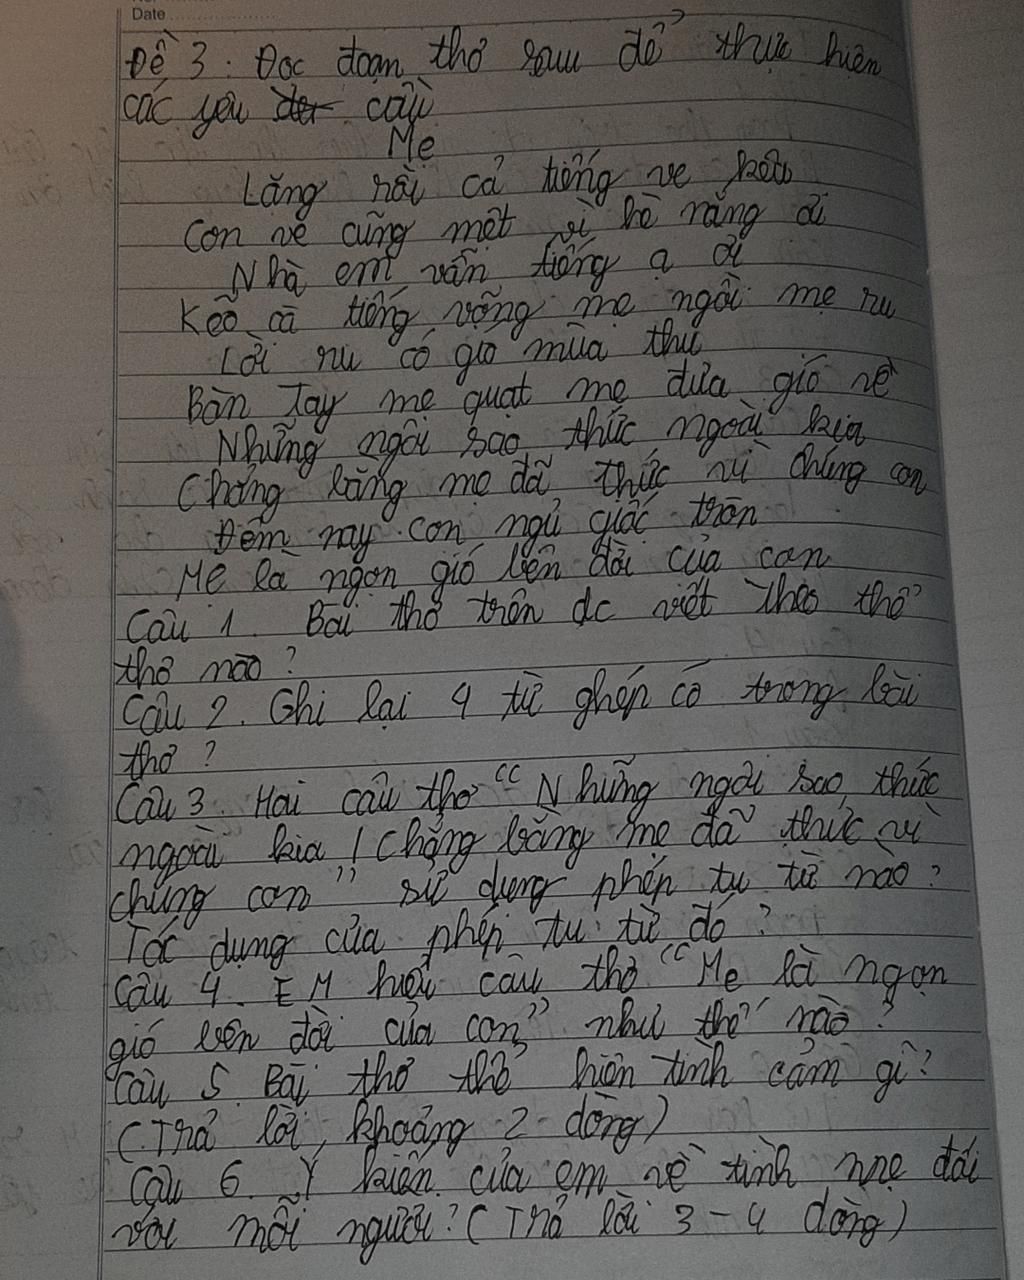 Date
Đề 3. Đọc đoạn thơ sau để thực hiện
các yêu cầu
Mẹ
Lặng rồi cả tiếng ve kêu
Con ve cũng mệt vì hè nắng ơi
Nhà em vẫn tiếng ạ ời
Kẽo cà tiếng võng mẹ ngồi mẹ ru
Lời ru có gió mùa thu
Bàn Tay mẹ quạt mẹ đưa gió về
Những ngôi sao thức ngoài kia
Chẳng bằng mẹ đã thức vì chúng con
Đêm nay con ngủ giấc tròn
Mẹ là ngọn gió bên đời của con
Câu 1. Bài thơ trên đc viết theo thể
thơ nào?
Câu 2. Ghi lại 4 từ ghép có trong bài
thơ?
Câu 3. Hai câu thơ "Những ngôi sao thức
ngoài kia / Chẳng bằng mẹ đã thức vì
chúng con" sử dụng phép tu từ nào?
Tác dụng của phép tu từ đó?
Câu 4. EM hiểu câu thơ "Mẹ là ngọn
gió bên đời của con" như thế nào?
Câu 5 Bài thơ thể hiện tình cảm gì?
(Trả lời khoảng 2 dòng)
Câu 6. Ý kiến của em về tình mẹ đối
với mỗi người? (Trả lời 3-4 dòng)